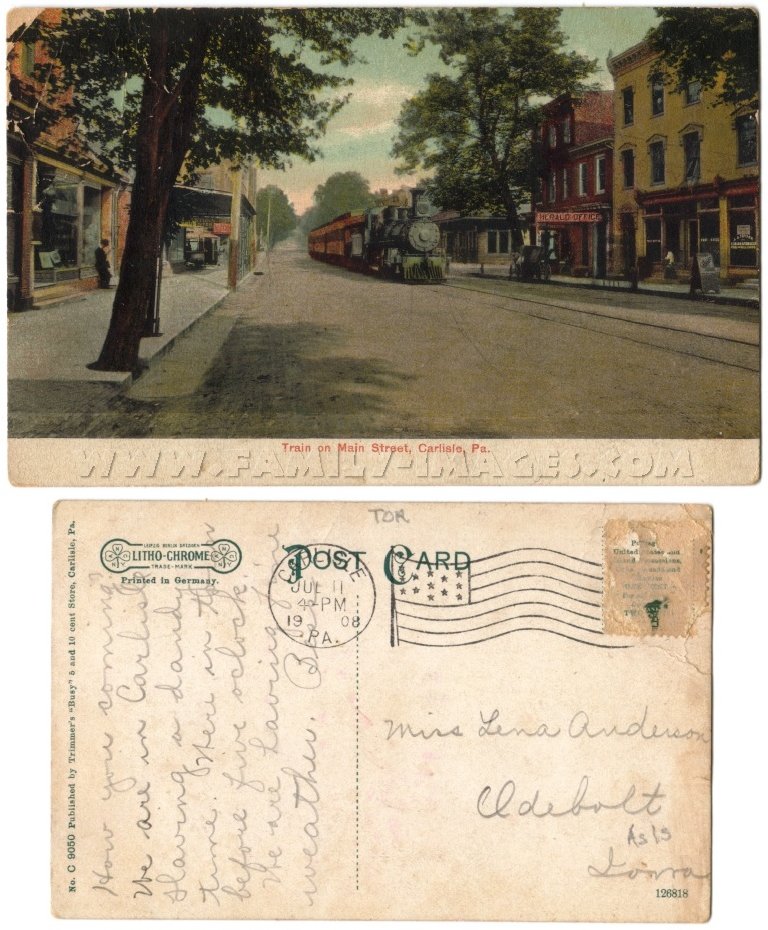 HERALD OFFICE
Train on Main Street, Carlisle, Pa.
WWW.FAMILY-IMAGES.COM
TOR
LEIPZIG BERLIN DRESDEN
LITHO-CHROME
TRADE-MARK
Printed in Germany.
POST CARD
CARLISLE
JUL 11
4-PM
1908
PA.
No. C 9050 Published by Trimmer's "Busy" 5 and 10 cent Store, Carlisle, Pa.
How you coming,
We are in Carlisle
Having a dandy
time. Here in
before five oclock.
We are having fine
weather.
Miss Lena Anderson
Odebolt
As Is
Iowa
126818